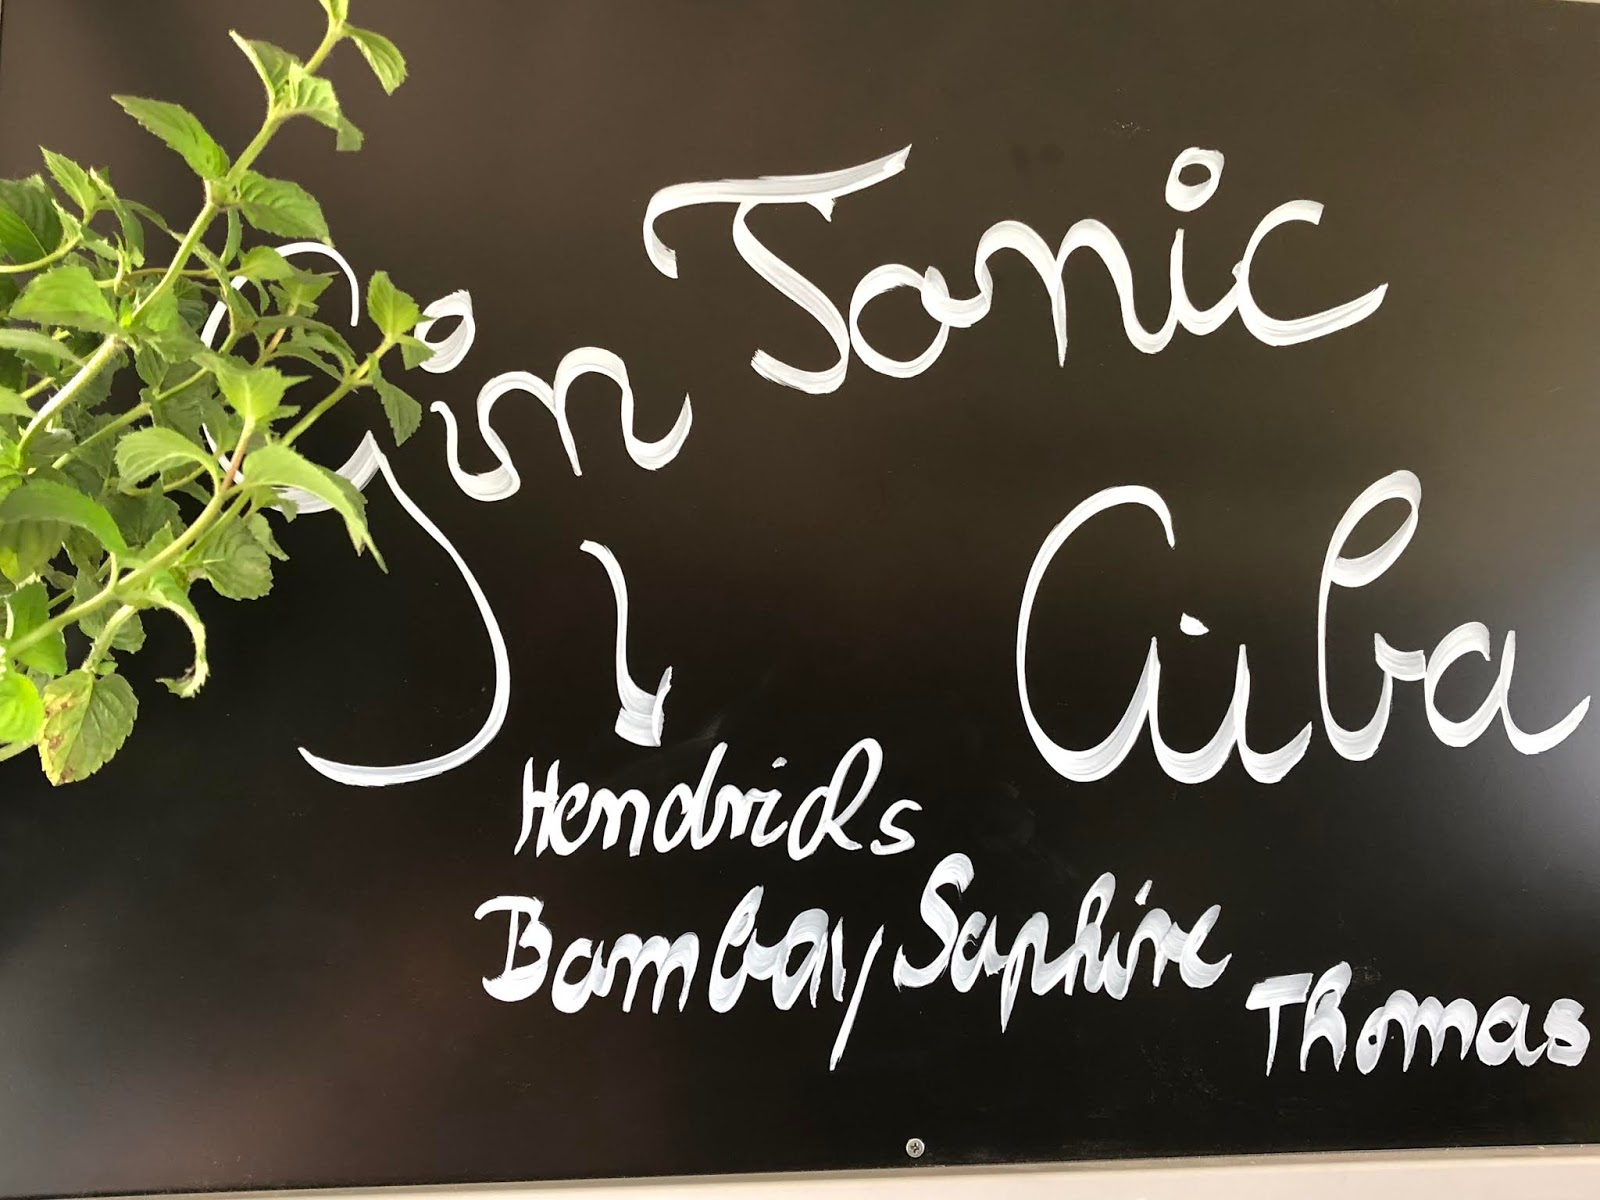 Gin Tonic
Cuba
Hendricks
Bombay Saphire
Thomas